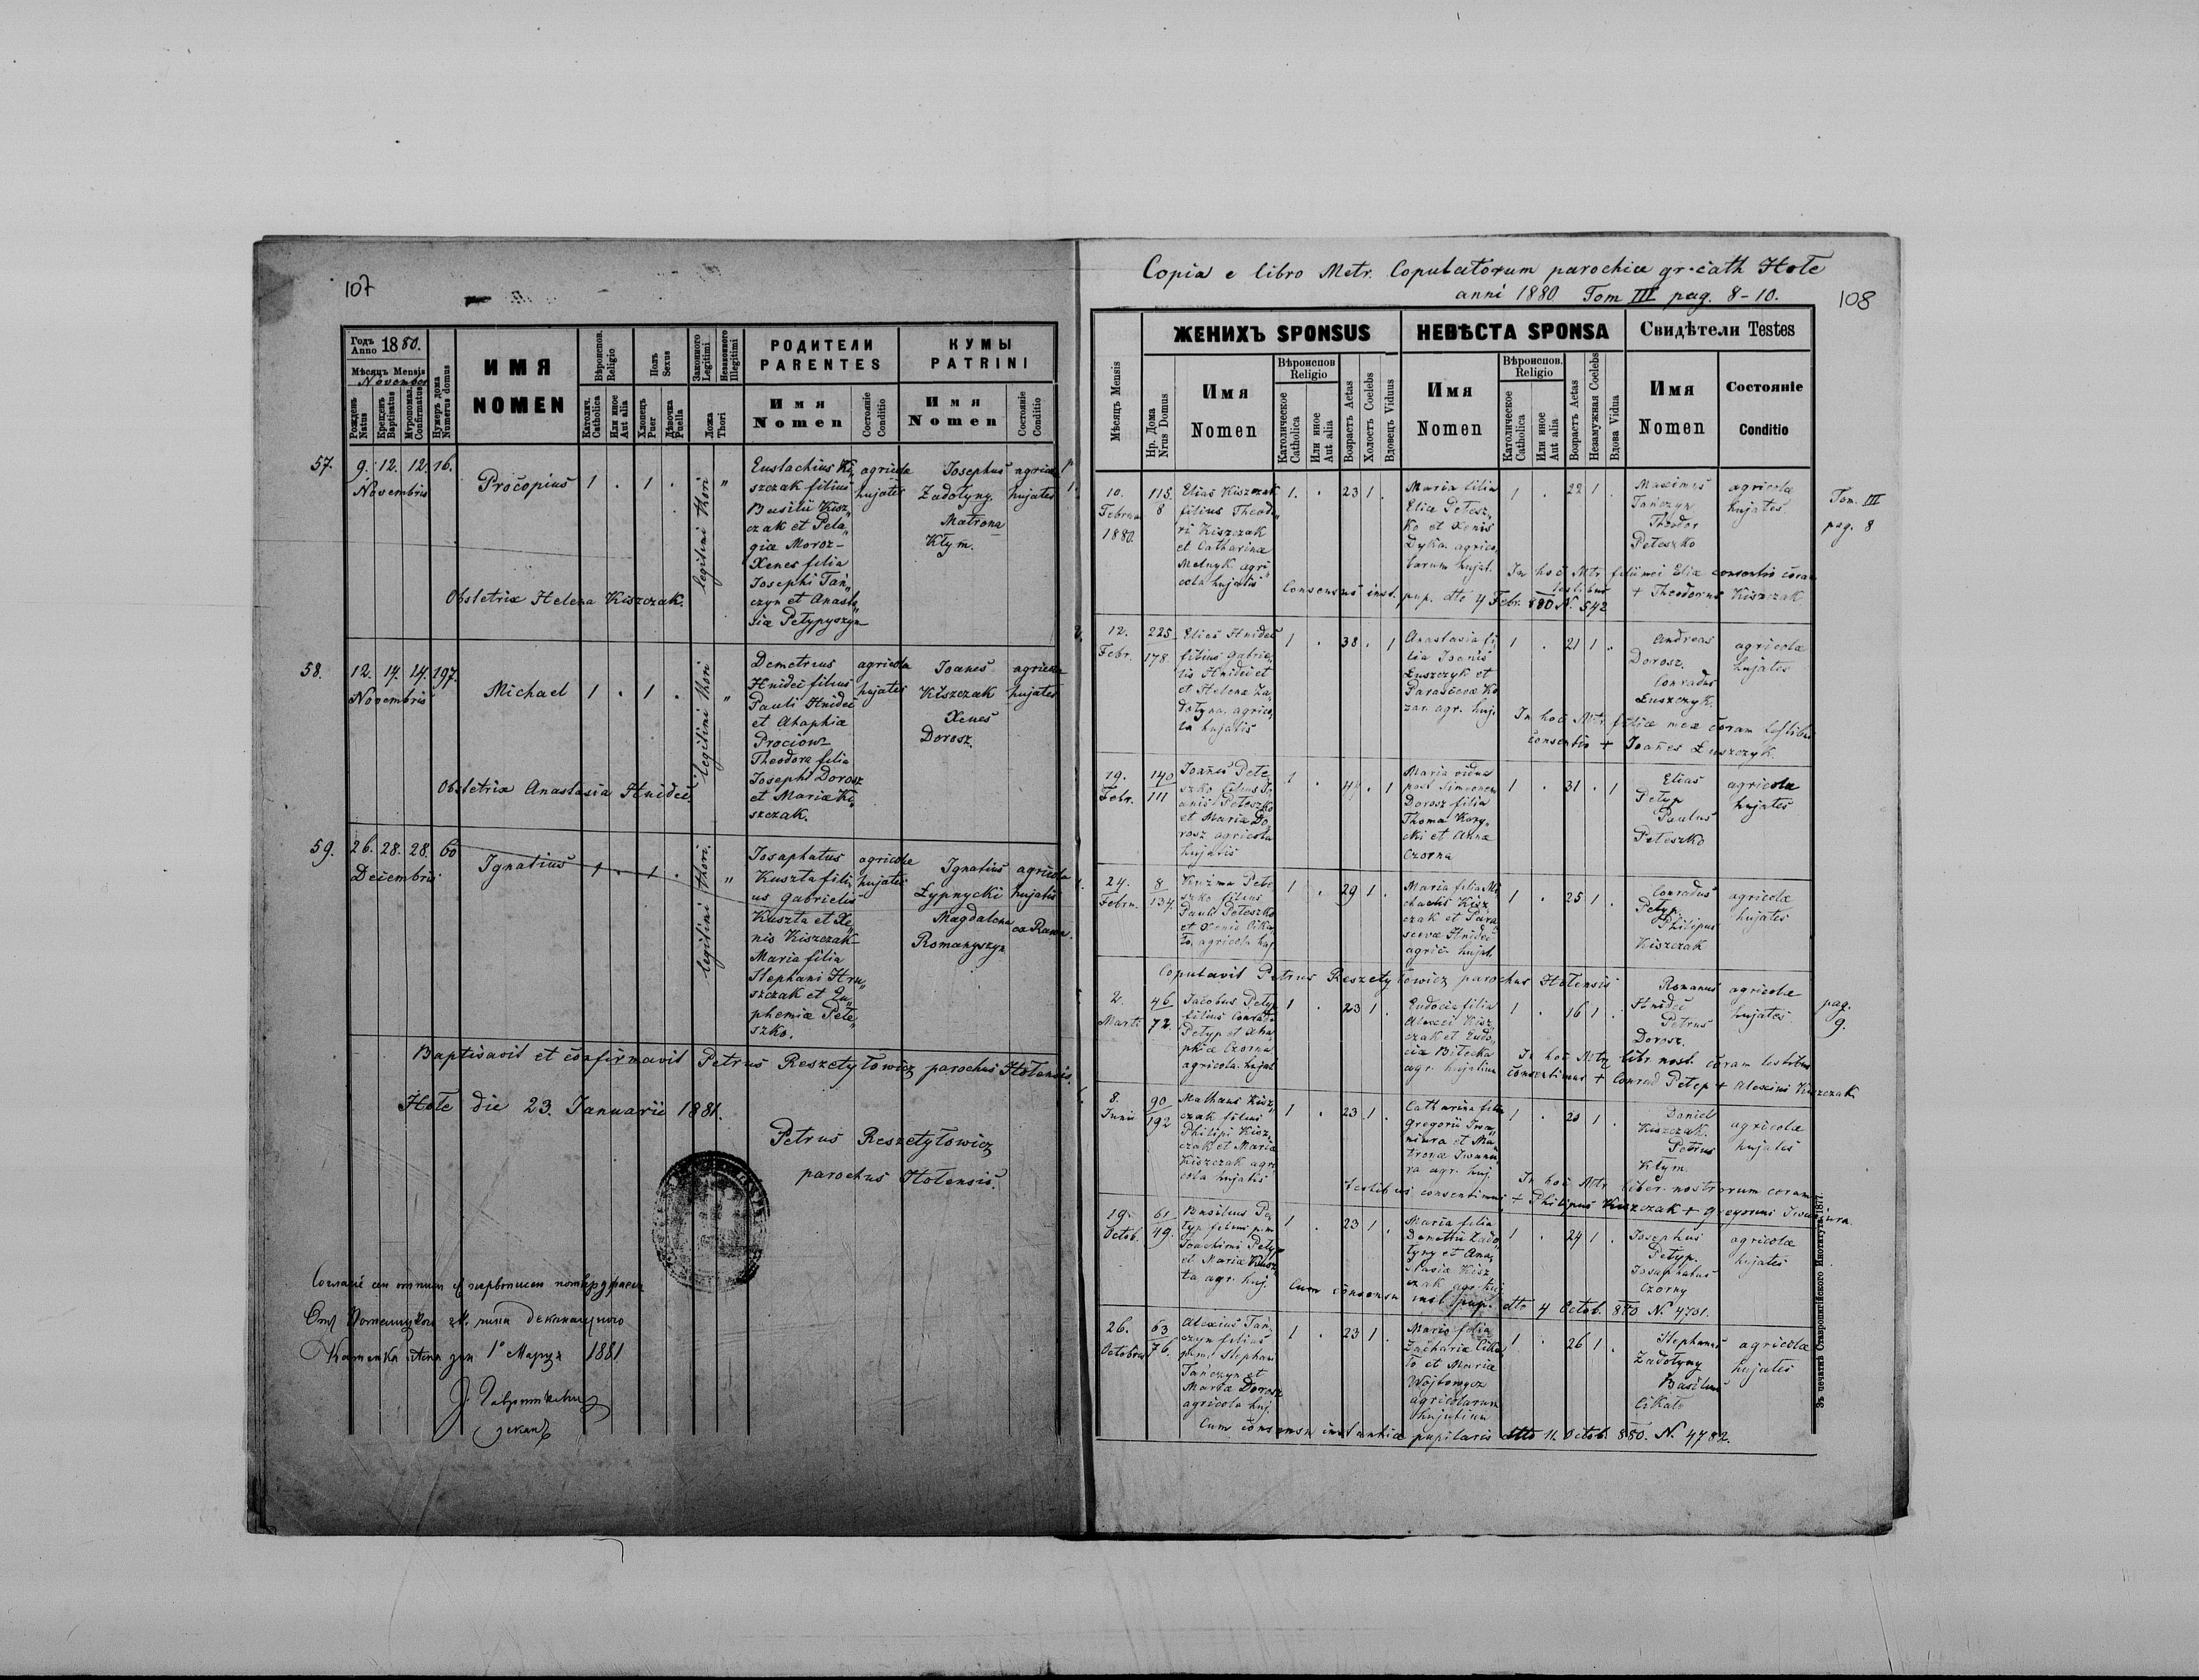 107
Годъ Anno 1880.
Мѣсяцъ Mensis
November
Рожденъ Natus
Крещенъ Baptisatus
Муропомаз. Confirmatus
Нумеръ дома Numerus domus
ИМЯ
NOMEN
Вѣроиспов. Religio
Католич. Catholica
Или иное Aut alia
Полъ Sexus
Хлопецъ Puer
Дѣвочка Puella
Законного Legitimi
Незаконного Illegitimi
Ложа Thori
РОДИТЕЛИ
PARENTES
Имя
Nomen
Состояніе Conditio
КУМЫ
PATRINI
Имя
Nomen
Состояніе Conditio
57. 9. 12. 12. 16.
Novembris
Procopius 1 . 1 .
legitimi thori
"
Eustachius Ki„
szczak filius
Basilii Kisz„
czak et Pela„
giæ Moroz –
Xenes filia
Josephi Tań„
czyn et Anasta„
siæ Petypyszyn
agricola
hujates
Josephus
Zadołyny.
Matrona
Kłym.
agricolæ
hujates
Obstetrix Helena Kiszczak.
58. 12. 14. 14. 197.
Novembris
Michael 1 . 1 .
legitimi thori
"
Demetrius
Hnideć filius
Pauli Hnideć
et Ahaphiæ
Prociow
Theodora filia
Josephi Dorosz
et Mariæ Ki„
szczak.
agricola
hujates
Joanes
Kiszczak
Xenes
Dorosz.
agricola
hujates
Obstetrix Anastasia Hnideć.
59. 26. 28. 28. 60
Decembris
Ignatius 1 . 1 .
legitimi thori.
"
Josaphatus
Kuszta fili„
us Gabrielis
Kuszta et Xe„
nis Kiszczak
Maria filia
Stephani Hru„
szczak et Eu„
phemiæ Pete„
szko.
agricolæ
hujates
Ignatius
Łypnycki
Magdalena
Romanyszyn
agricola
hujatis
ex Rawa.
Baptisavit et confirmavit Petrus Reszetyłowicz parochus Hołensis.
Hołe die 23. Januarii 1881.
Petrus Reszetyłowicz
parochus Hołensis.
1881
Copia e libro Metr. Copulatorum parochiæ gr. cath Hołe
anni 1880 Tom III pag. 8-10.
108
Мѣсяцъ Mensis
ЖЕНИХЪ SPONSUS
Нр. Дома Nrus Domus
Имя
Nomen
Вѣроиспов Religio
Католическое Catholica
Или иное Aut alia
Возрастъ Aetas
Холостъ Coelebs
Вдовецъ Viduus
НЕВѢСТА SPONSA
Имя
Nomen
Вѣроиспов. Religio
Католическое Catholica
Или иное Aut alia
Возрастъ Aetas
Незамужная Coelebs
Вдова Vidua
Свидѣтели Testes
Имя
Nomen
Состояніе
Conditio
10.
Februa
1880.
115.
8
Elias Kiszczak
filius Theodo„
ri Kiszczak
et Catharinæ
Melnyk agri„
cola hujatis
1. . 23 1 .
Maria filia
Eliæ Petesz„
ko et Xenis
Dyka agrico„
larum hujat.
1 . 22 1 .
Maximus
Tańczyn
Theodor
Peteszko
agricolæ
hujates
Tom. III
pag. 8
In hoc Mtr filii mei Eliæ consentio coram
testibus
+ Theodorus Kiszczak
Consensus inst. pup. dto 4 Febr. 880 N. 542
12.
Febr.
225
178
Elias Hnideć
filius Gabrie„
lis Hnideć et
et Helenæ Za„
dołyna. agrico„
la hujatis
1 . 38 . 1
Anastasia fi„
lia Joanis
Łuszczyk et
Parascevæ Ko
zar. agr. huj.
1 . 21 1 .
Andreas
Dorosz.
Conradus
Łuszczyk.
agricolæ
hujates
In hoc Mtr. filiæ meæ coram testibus
consentio + Joanes Łuszczyk.
19.
Febr.
140
111
Joanes Pete
szko filius Jo„
anis Peteszko
et Mariæ Do„
rosz agricola
hujatis
1 . 44 . 1
Maria vidua
post Simeonem
Dorosz filia
Thoma Kory„
cki et Anna
Czorna
1 . 31 . 1
Elias
Petyp
Paulus
Peteszko
agricolæ
hujates
24.
Febru.
8
134
Kuzma Pete
szko filius
Pauli Peteszko
et Xenis Cika
ło, agricola huj
1 . 29 1 .
Maria filia Mi
chaelis Kisz
czak et Para
scevæ Hnideć
agric. hujat
1 . 25 1 .
Conradus
Petyp.
Philipus
Kiszczak
agricolæ
hujates
Copulavit Petrus Reszetyłowicz parochus Hołensis
2.
Marti
46
72.
Jacobus Petyp
filius Conradi
Petyp et Aha„
phiæ Czorna
agricola. hujat
1 . 23 1 .
Eudocia filia
Alexii Kisz„
czak et Eudo„
ciæ Biłecka
agr. hujatium
1 . 16 1 .
Romanus
Hnideć
Petrus
Dorosz.
agricolæ
hujates
pag.
9.
In hoc Mtr libr. nost. coram testibus
consentimus + Conrad Petyp + Alexius Kiszczak
8.
Junii
90
192
Mathæus Kisz„
czak filius
Philipi Kisz„
czak et Mariæ
Kiszczak agri
cola hujatis
1 . 23 1 .
Catharina filia
Gregorii Iwa„
niura et Ma„
tronæ Iwaniu„
ra agr. huj.
1 . 20 1 .
Daniel
Kiszczak.
Petrus
Kłym.
agricolæ
hujates
In hoc Mtr. liber. nostrorum coram
testibus consentimus + Philipus Kiszczak + Gregorius Iwaniura.
19.
Octob.
61
19.
Basilius Pe„
typ filius p.m
Joachimi Petyp
et Mariæ Kusz„
ta agr. huj.
1 . 23 1 .
Maria filia
Demetrii Zado„
łyny et Ana„
stasiæ Kisz
czak agr. huj
1 . 24 1 .
Josephus
Petyp.
Josaphatus
Czorny
agricolæ
hujates
Cum consensu inst. pup. dto 4 Octob. 880 N. 4701.
26.
Octobris
63
76.
Alexius Tań„
czyn filius
p.m. Stephani
Tańczyn et
Mariæ Dorosz
agricola huj.
1 . 23 1 .
Maria filia
Zachariæ Cika
ło et Mariæ
Wojtowycz
agricolarum
hujatium
1 . 26 1 .
Stephanus
Zadołyny
Basilius
Cikało
agricolæ
hujates
Cum consensu instantiæ pupilaris dtto 11 Octob. 880. N. 4782.
Зъ печатнѣ Ставропигійского Института 1877.